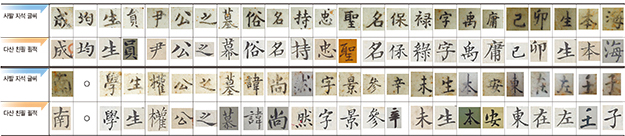 사발 지석 글씨 成 均 生 員 尹 公 之 墓 俗 名 持 忠 聖 名 保 禄 字 禹 庸 己 卯 生 本 海
다산 친필 필적 成 均 生 員 尹 公 之 墓 俗 名 持 忠 聖 名 保 祿 字 禹 庸 己 卯 生 本 海
사발 지석 글씨 南 ○ 學 生 權 公 之 墓 諱 尙 然 字 景 參 辛 未 生 本 安 東 在 左 壬 子
다산 친필 필적 南 ○ 學 生 權 公 之 墓 諱 尙 然 字 景 參 辛 未 生 本 安 東 在 左 壬 子